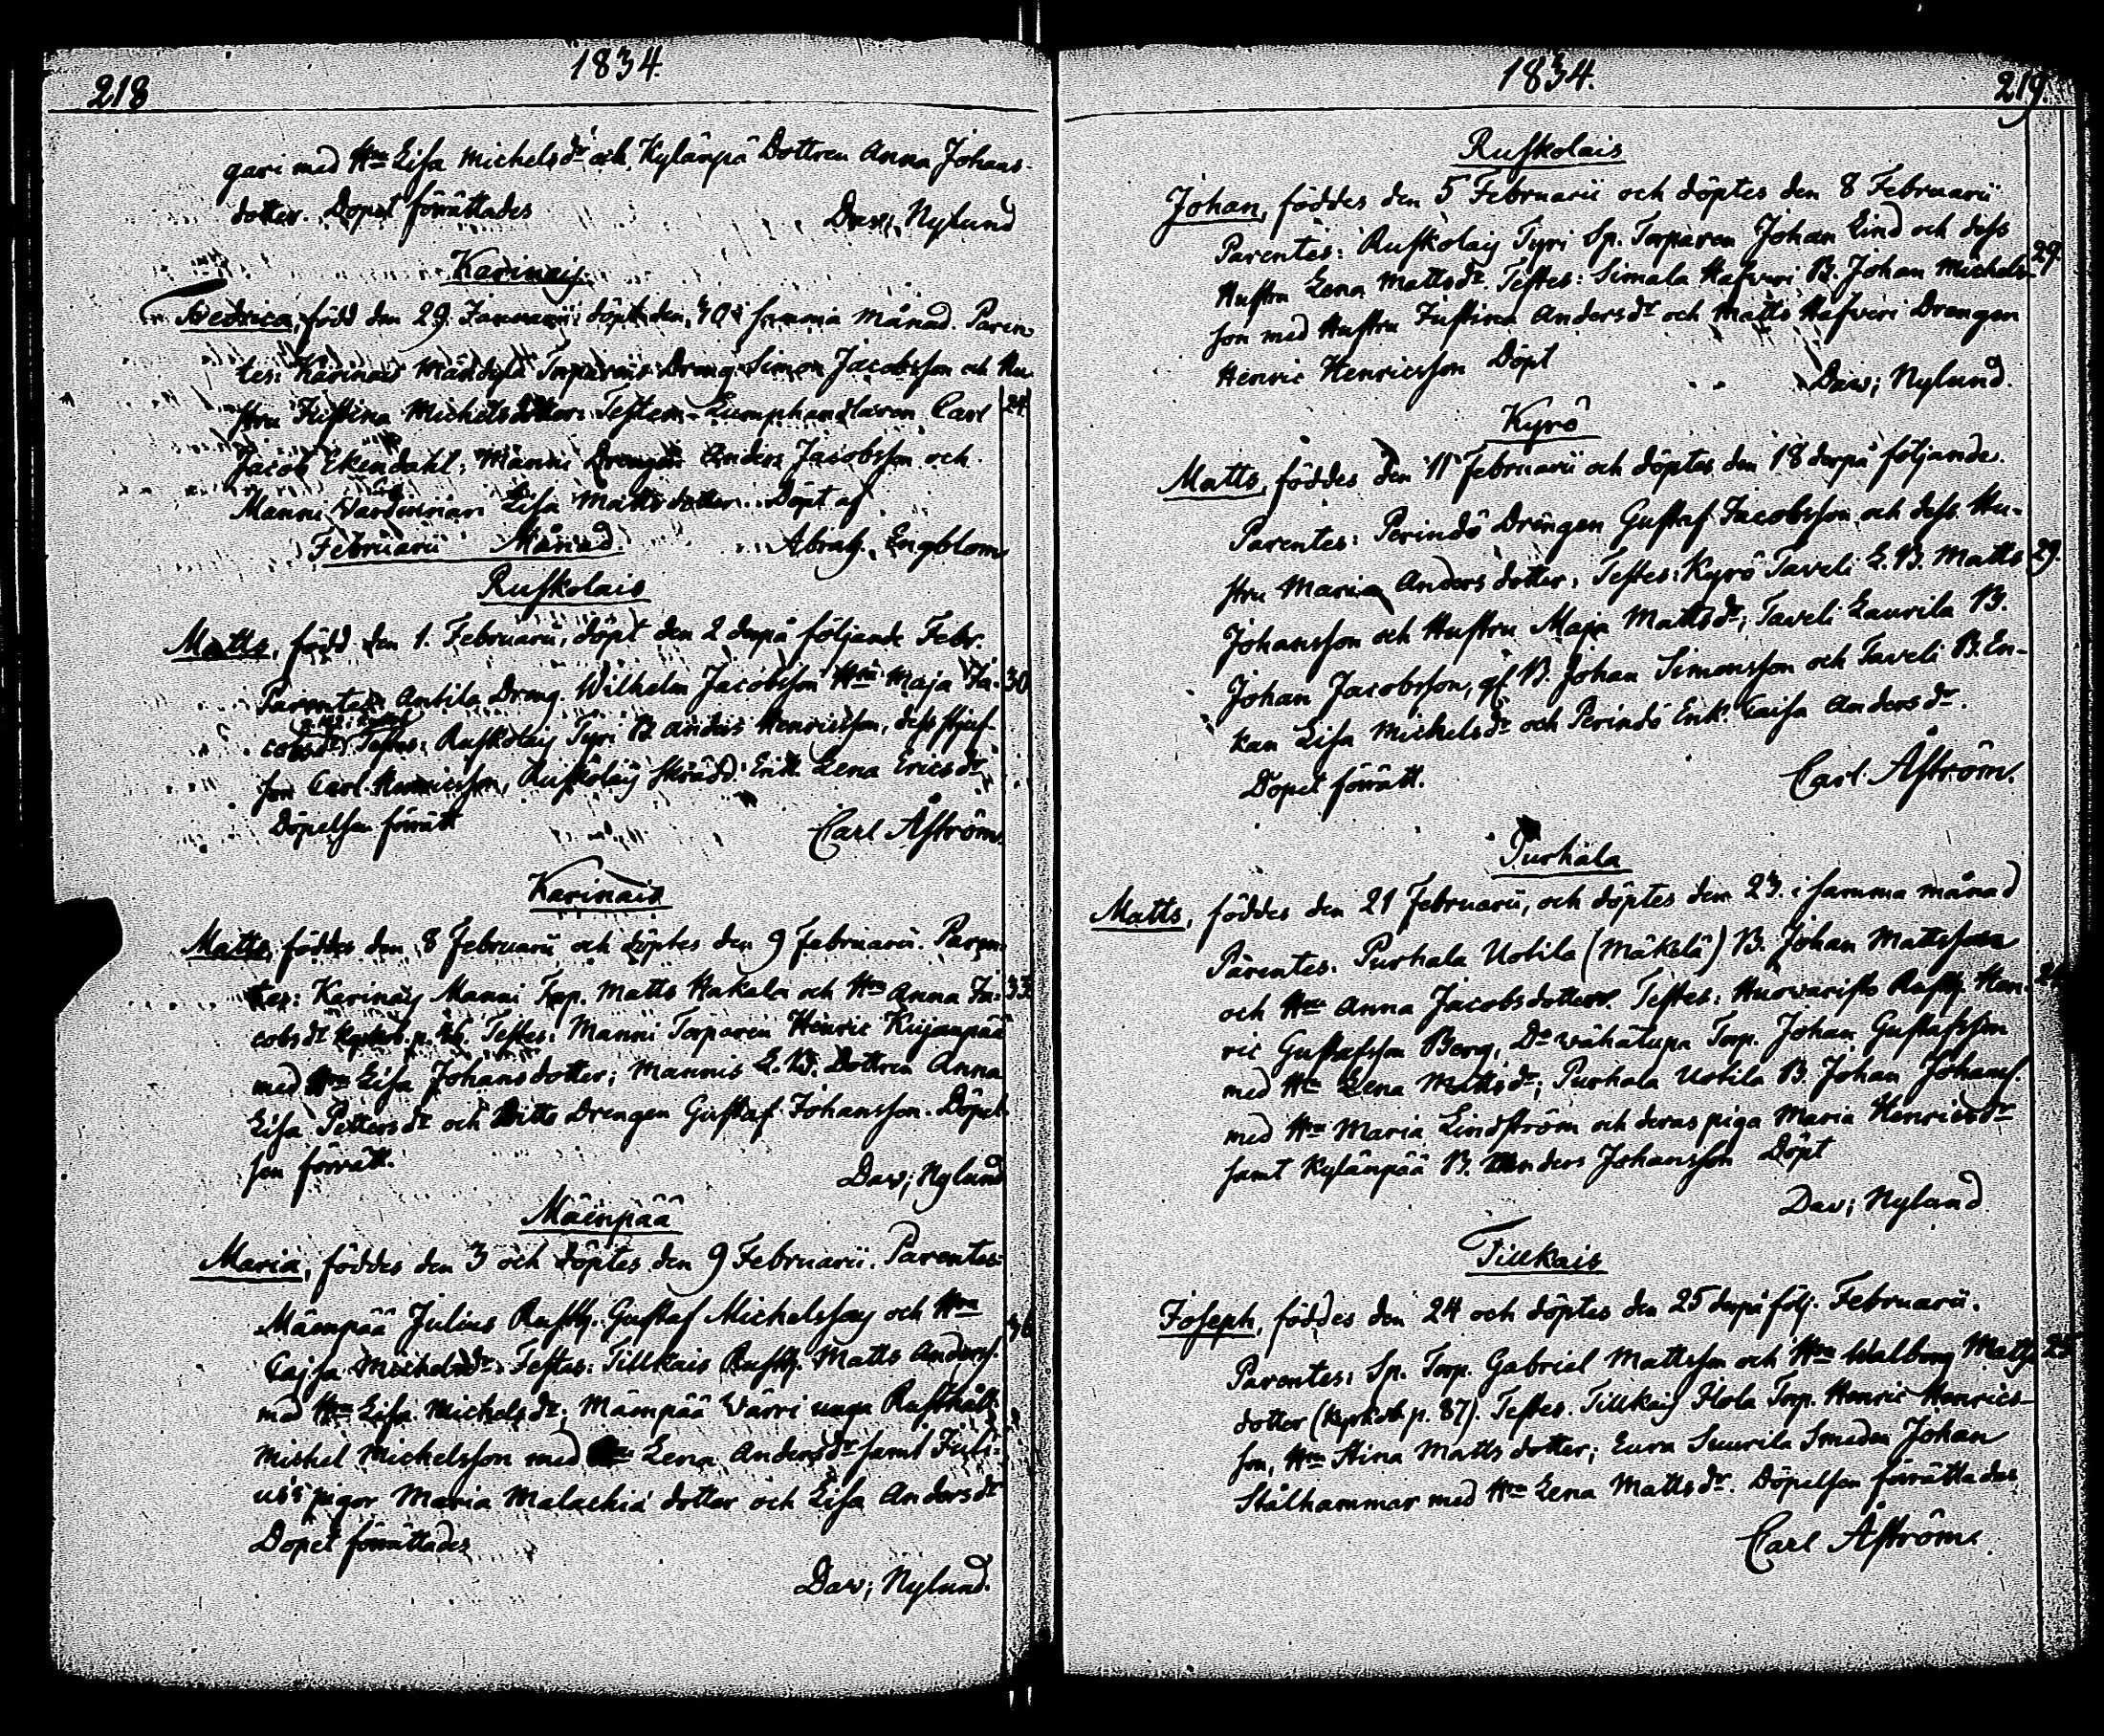 218
1834.
gari med Hru Lisa Michelsdr och Kylänpä Dottren Anna Johans-
dotter. Dopet förrättades Dav; Nylund
Karinais
Fredrica, född den 29 Januarii döpt den 30 i samma Månad. Paren-
tes: Karinais Torparens Dräng Simon Jacobsson och Hu-
stru Justina Michelsdotter. Testes: Lumphandlaren Carl 24.
Jacob Ekendahl; Männi Drengen Anders Jacobsson och
Manni Lisa Mattsdotter. Döpt af
Februarii Månad Abrah. Engblom
Ruskolais
Matts, född den 1. Februarii, döpt den 2 derpå följande Febr.
Parentes: Antila Dreng. Wilhelm Jacobsson Hru Maja Ja- 30
cobsdr. Testes: Ruskolais Tyri B. Anders Henricsson, dess styf-
son Carl Henricsson, Ruskolais Skrädd. Enk. Lena Ericsdr
Döpelsen förrätt Carl Åström.
Karinais
Matts, föddes den 8 Februarii och döptes den 9 Februarii. Paren-
tes: Karinais Manni Torp. Matts Hakala och Hru Anna Ja- 33.
cobsdr Testes: Manni Torparen Henric Kujanpää
med Hru Lisa Johansdotter; Mannis L. B. Dottren Anna
Lisa Pettersdr och Ditto Drengen Gustaf Johansson. Döpel-
sen förrätt. Dav; Nylund
Mäenpää
Maria, föddes den 3 och döptes den 9 Februarii. Parentes:
Mäenpää Julius Rusth. Gustaf Michelsson och Hru
Cajsa Michelsdr. Testes: Tillkais Rusth. Matts Anders.
med Hru Lisa Michelsdr; Mäenpää Värri unga Rusthåll.
Michel Michelsson med Hru Lena Andersdr samt Juli-
us's pigor Maria Malachiædotter och Lisa Andersdr
Dopet förrättades
Dav; Nylund.
1834.
219.
Ruskolais
Johan, föddes den 5 Februarii och döptes den 8 Februarii
Parentes: Ruskolais Tyri Sp. Torparen Johan Lind och dess 29.
Hustru Lena Mattsdr. Testes: Simala Hafveri B. Johan Michels-
son med Hustru Justina Andersdr och Matts Hafveri Drengen
Henric Henricsson Döpt Dav; Nylund.
Kyrö
Matts, föddes den 11 Februarii och döptes den 18 derpå följande.
Parentes: Perindö Drängen Gustaf Jacobsson och dess Hu-
stru Maria Andersdotter. Testes: Kyrö Taveli L. B. Matts 29.
Johansson och Hustru Maja Mattsdr; Taveli Laurila B.
Johan Jacobsson, gl. B. Johan Simonsson och Taveli B. En-
kan Lisa Michelsdr och Perindö Enk. Caisa Andersdr.
Dopet förrätt. Carl Åström.
Purhala
Matts, föddes den 21 Februarii, och döptes den 23. i samma månad
Parentes. Purhala Uotila (Mäkelä) B. Johan Mattsson
och Hru Anna Jacobsdotter. Testes: Huovaristo Rusth. Hen-
ric Gustafsson Berg, Do Vähätupa Torp. Johan Gustafsson
med Hru Lena Mattsdr; Purhala Uotila B. Johan Johans.
med Hru Maria Lindström och deras piga Maria Henricsdr
samt Kylänpää B. Anders Johansson Döpt
Dav; Nylund
Tillkais
Joseph, föddes den 24 och döptes den 25 derpå följ. Februarii.
Parentes: Sp. Torp. Gabriel Mattsson och Hru Walborg Matts-
dotter (Kyrkob. p. 87). Testes. Tillkais Flola Torp. Henric Henrics-
son, Hru Stina Mattsdotter; Eura Suurila Smeden Johan
Stålhammar med Hru Lena Mattsdr. Döpelsen förrättades
Carl Åström.